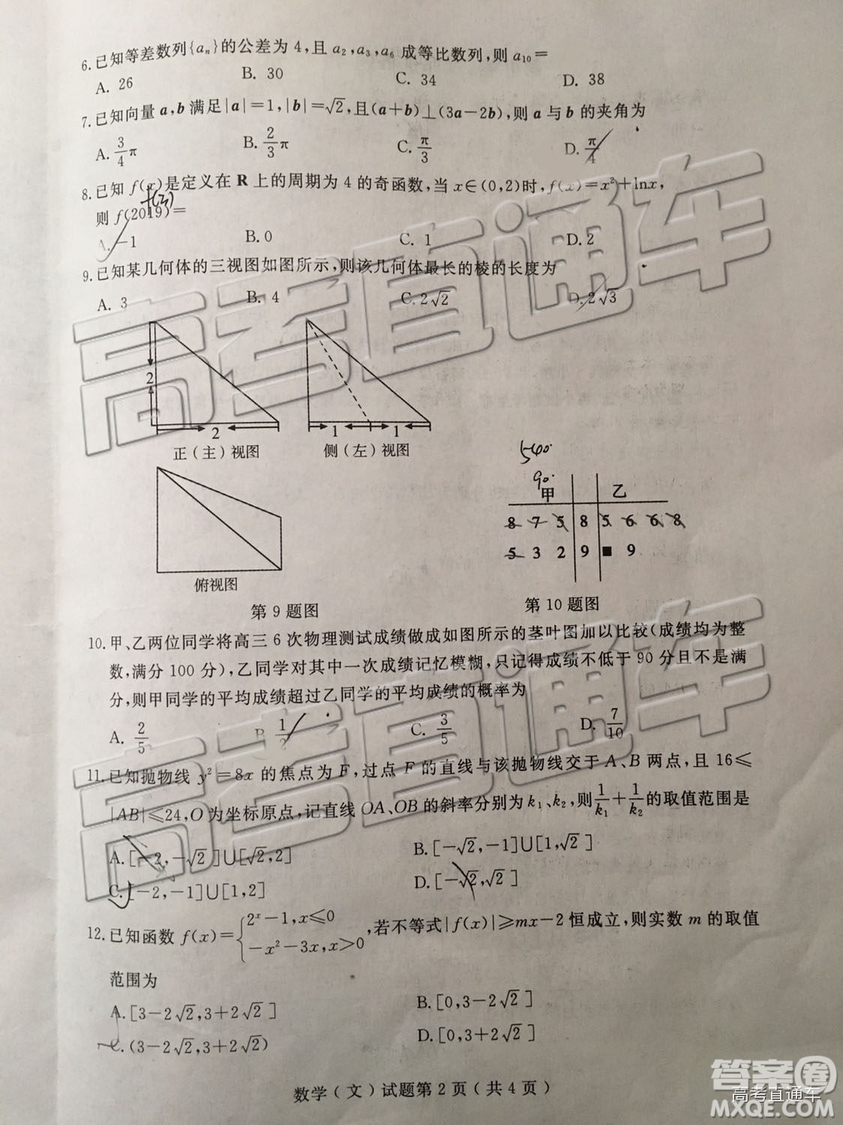 6.已知等差数列{aₙ}的公差为4,且a₂,a₃,a₆成等比数列,则a₁₀=
A. 26 B. 30 C. 34 D. 38
7.已知向量a,b满足|a|=1,|b|=√2,且(a+b)⊥(3a-2b),则a与b的夹角为
A. 3/4 π B. 2/3 π C. π/3 D. π/4
8.已知f(x)是定义在R上的周期为4的奇函数,当x∈(0,2)时,f(x)=x²+lnx,
则f(2019)=
A. -1 B. 0 C. 1 D. 2
9.已知某几何体的三视图如图所示,则该几何体最长的棱的长度为
A. 3 B. 4 C. 2√2 D. 2√3
2
2
正(主)视图
1 1
侧(左)视图
俯视图
第9题图
540
90
甲 乙
8 7 5 8 5 6 6 8
5 3 2 9 ■ 9
第10题图
10.甲、乙两位同学将高三6次物理测试成绩做成如图所示的茎叶图加以比较(成绩均为整
数,满分100分),乙同学对其中一次成绩记忆模糊,只记得成绩不低于90分且不是满
分,则甲同学的平均成绩超过乙同学的平均成绩的概率为
A. 2/5 B. 1/2 C. 3/5 D. 7/10
11.已知抛物线y²=8x的焦点为F,过点F的直线与该抛物线交于A、B两点,且16≤
|AB|≤24,O为坐标原点,记直线OA、OB的斜率分别为k₁、k₂,则1/k₁+1/k₂的取值范围是
A.[-2,-√2]∪[√2,2] B.[-√2,-1]∪[1,√2]
C.[-2,-1]∪[1,2] D.[-√2,√2]
12.已知函数f(x)={2ˣ-1,x≤0
-x²-3x,x>0 ,若不等式|f(x)|≥mx-2恒成立,则实数m的取值
范围为
A.[3-2√2,3+2√2] B.[0,3-2√2]
C.(3-2√2,3+2√2) D.[0,3+2√2]
数学(文)试题第2页(共4页)
高考直通车
高考直通车
答案圈
高考直通车
MXQE.COM